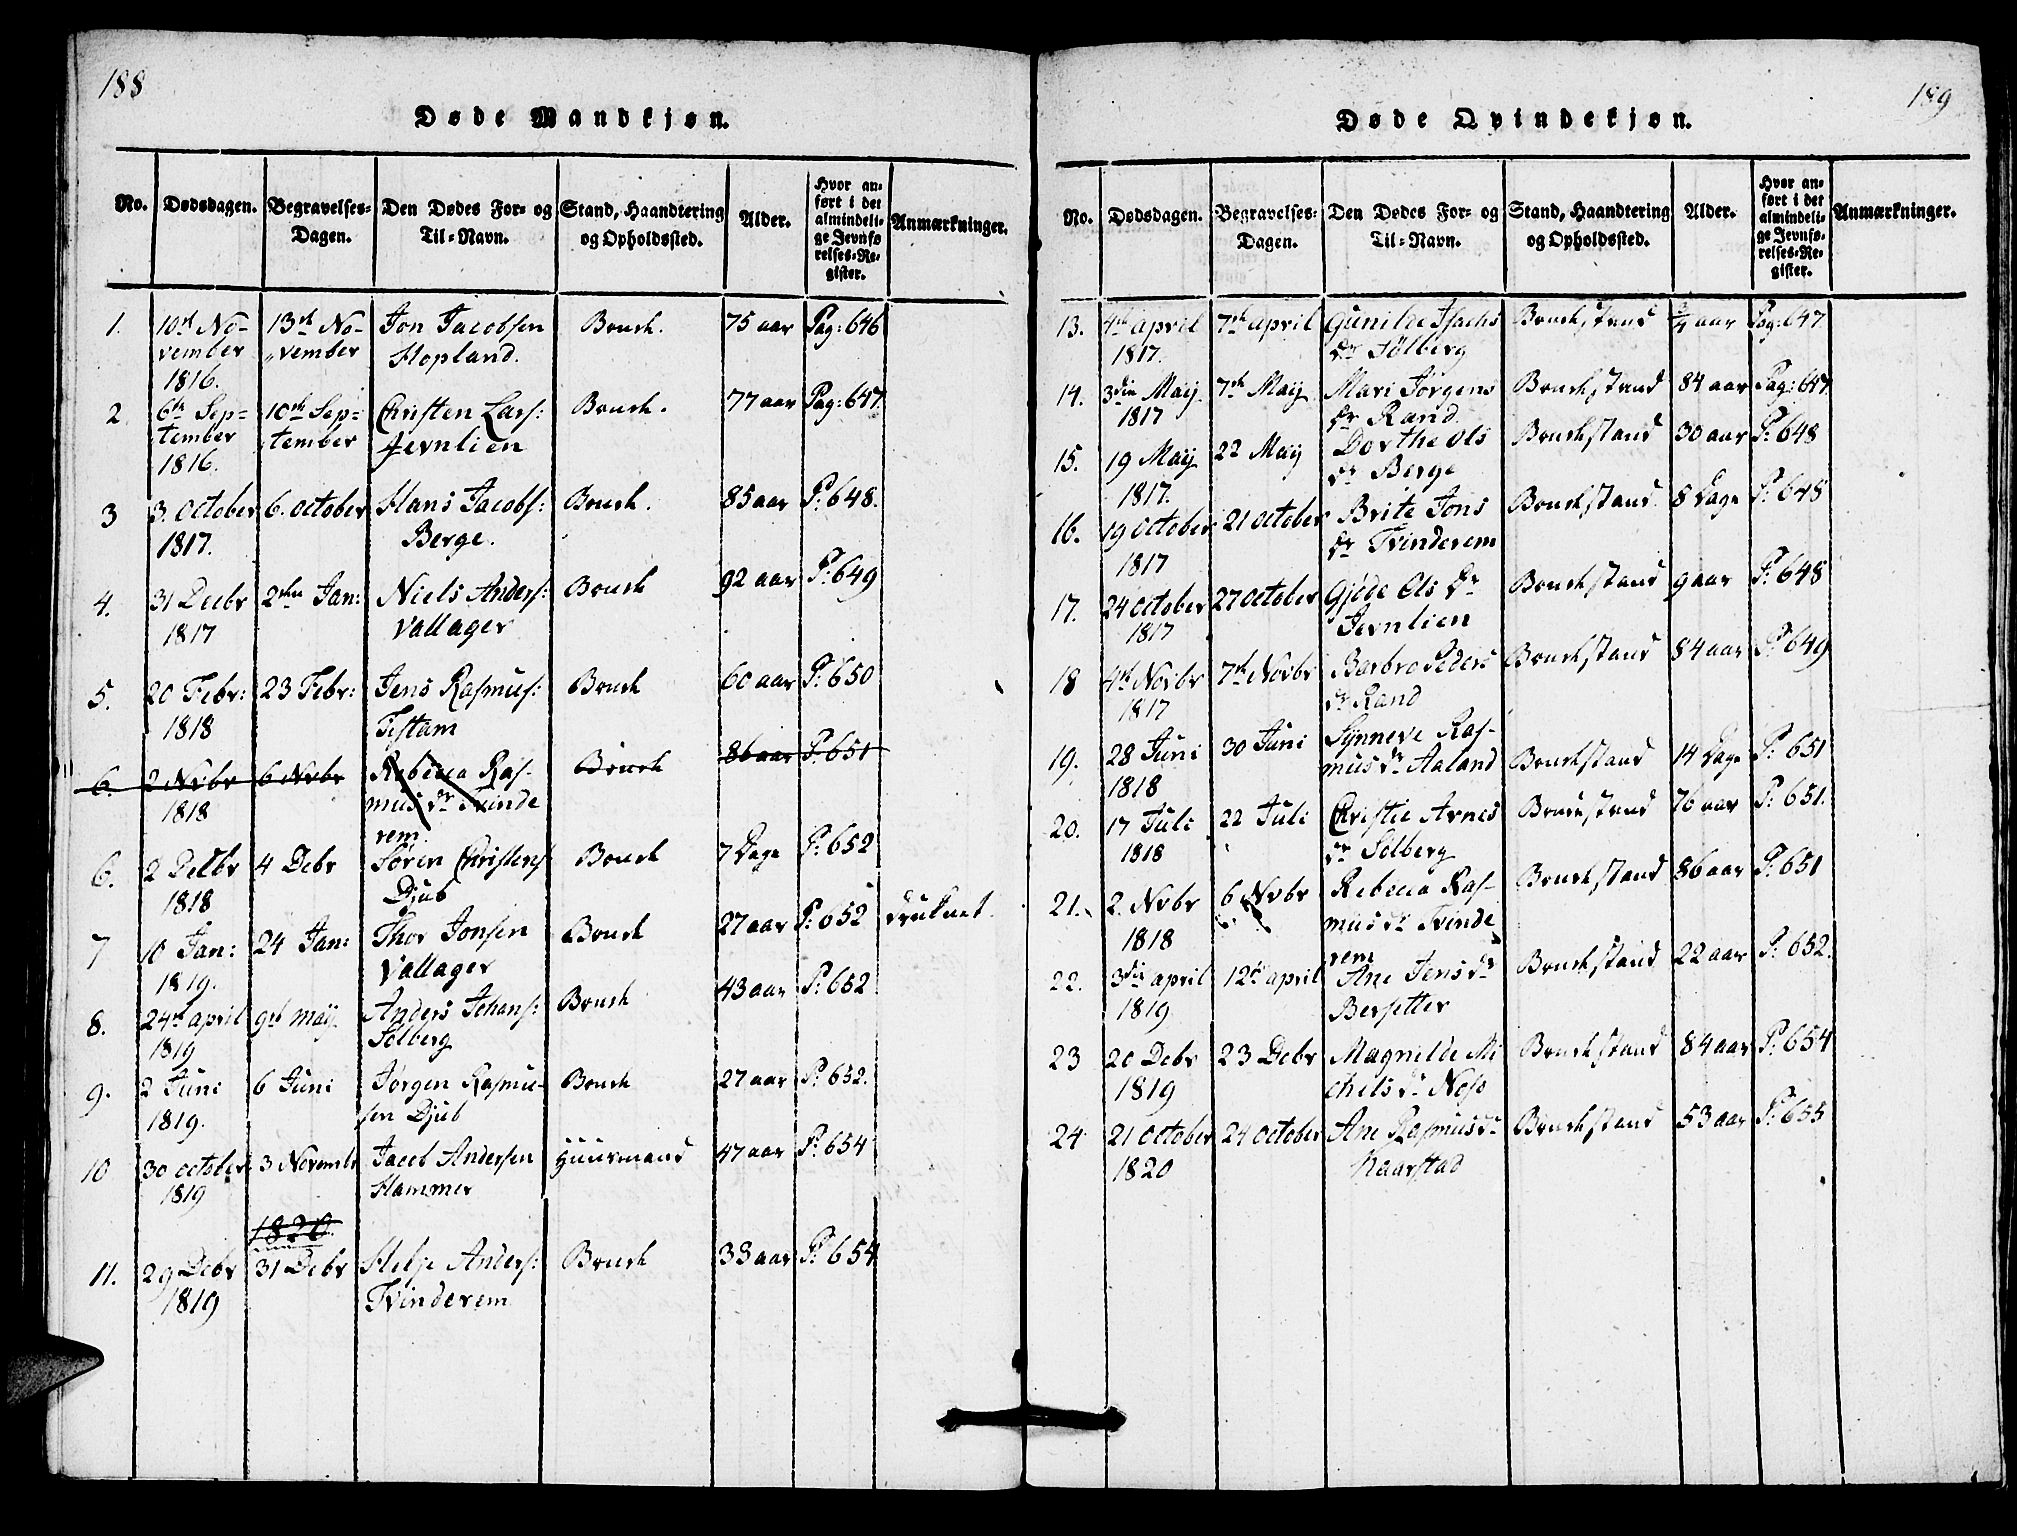 188
Døde Mandkjøn.
No. Dødsdagen. Begravelses-Dagen. Den Dødes For- og Til-Navn. Stand, Haandtering og Opholdssted. Alder. Hvor anført i det almindelige Jevnførelses-Register. Anmærkninger.
1. 10de November 1816. 13de November Jon Jacobsen Hopland. Bonde. 75 aar Pag: 646
2 6te September 1816. 10de September Christen Lars: Jevnlien Bonde. 77 aar Pag: 647
3 3. October 1817. 6. October Hans Jacobs: Berge. Bonde. 85 aar P: 648.
4. 31 Decbr 1817 2den Jan: Niels Anders: Vallager Bonde 92 aar P: 649
5. 20 Febr: 1818 23 Febr: Jens Rasmus: Testam Bonde 60 aar P: 650
6. 2 Nvbr 1818 6 Nvbr Rebecca Rasmus dr Tvinderem Bonde 86 aar P: 651
6. 2 Decbr 1818 4 Debr Søren Christens Djub Bonde 7 Dage P: 652
7 10 Jan: 1819. 24 Jan: Thor Jonsen Vallager Bonde 27 aar P: 652 druknet.
8. 24de april 1819 9de maij Anders Johans: Solberg Bonde 43 aar P: 652
9. 2 Juni 1819. 6 Juni Jørgen Rasmussen Djub Bonde 27 aar P: 652.
10 30 october 1819 3 Novembr Jacob Andersen Hammer Huusmand 47 aar P: 654
1820.
11. 29 Debr 1819 31 Debr Helje Anders: Tvinderem Bonde 33 aar P: 654
189
Døde Qvindekjøn.
No. Dødsdagen. Begravelses-Dagen. Den Dødes For- og Til-Navn. Stand, Haandtering og Opholdssted. Alder. Hvor anført i det almindelige Jevnførelses-Register. Anmærkninger.
13. 4de april 1817. 7de april Gunilde Isachs dr Solberg Bondestand 3/4 aar Pag: 647.
14. 3die Maij 1817 7de Maij Mari Jørgens dr Rand Bondestand 84 aar Pag: 647
15. 19 Maij 1817. 22 Maij Dorthe Ols dr Berge Bondestand 30 aar P: 648
16. 19 October 1817 21 october Brite Jons dr Tvinderem Bondestand 8 Dage P: 648
17. 24 October 1817 27 october Gjøde Ols dr Jevnlien Bondestand 9 aar P: 648
18 4de Novbr 1817 7de Novbr Barbro Peders dr Rand Bondestand 84 aar P: 649
19. 28 Juni 1818 30 Juni Synneve Rasmus dr Aaland Bondestand 14 Dage P: 651
20. 17 Juli 1818 22 Juli Christie Arnes dr Solberg Bondestand 76 aar P: 651.
21. 2. Nvbr 1818 6 Nvbr Rebecca Rasmus dr Tvinderem Bondestand 86 aar P: 651
22. 3die april 1819 12te april Ane Jens dr Bersetter Bondestand 22 aar P: 652.
23 20 Debr 1819 23 Debr Magnilde Michels dr Nosø Bondestand 84 aar P: 654
24 21 October 1820 24 october Ane Rasmus dr Kaarstad Bondestand 53 aar P: 655